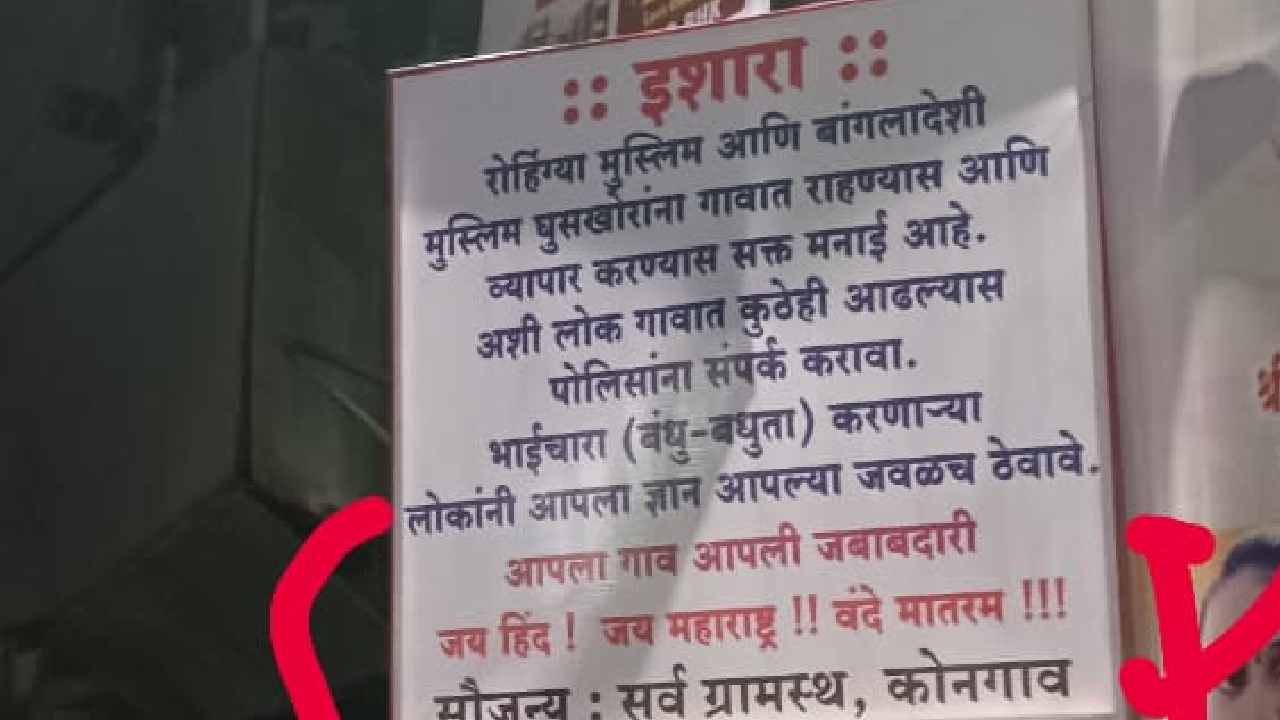 :: इशारा ::
रोहिंग्या मुस्लिम आणि बांगलादेशी
मुस्लिम घुसखोरांना गावात राहण्यास आणि
व्यापार करण्यास सक्त मनाई आहे.
अशी लोक गावात कुठेही आढल्यास
पोलिसांना संपर्क करावा.
भाईचारा (बंधु-बधुता) करणाऱ्या
लोकांनी आपला ज्ञान आपल्या जवळच ठेवावे.
आपला गाव आपली जबाबदारी
जय हिंद ! जय महाराष्ट्र !! वंदे मातरम !!!
सौजन्य : सर्व ग्रामस्थ, कोनगाव